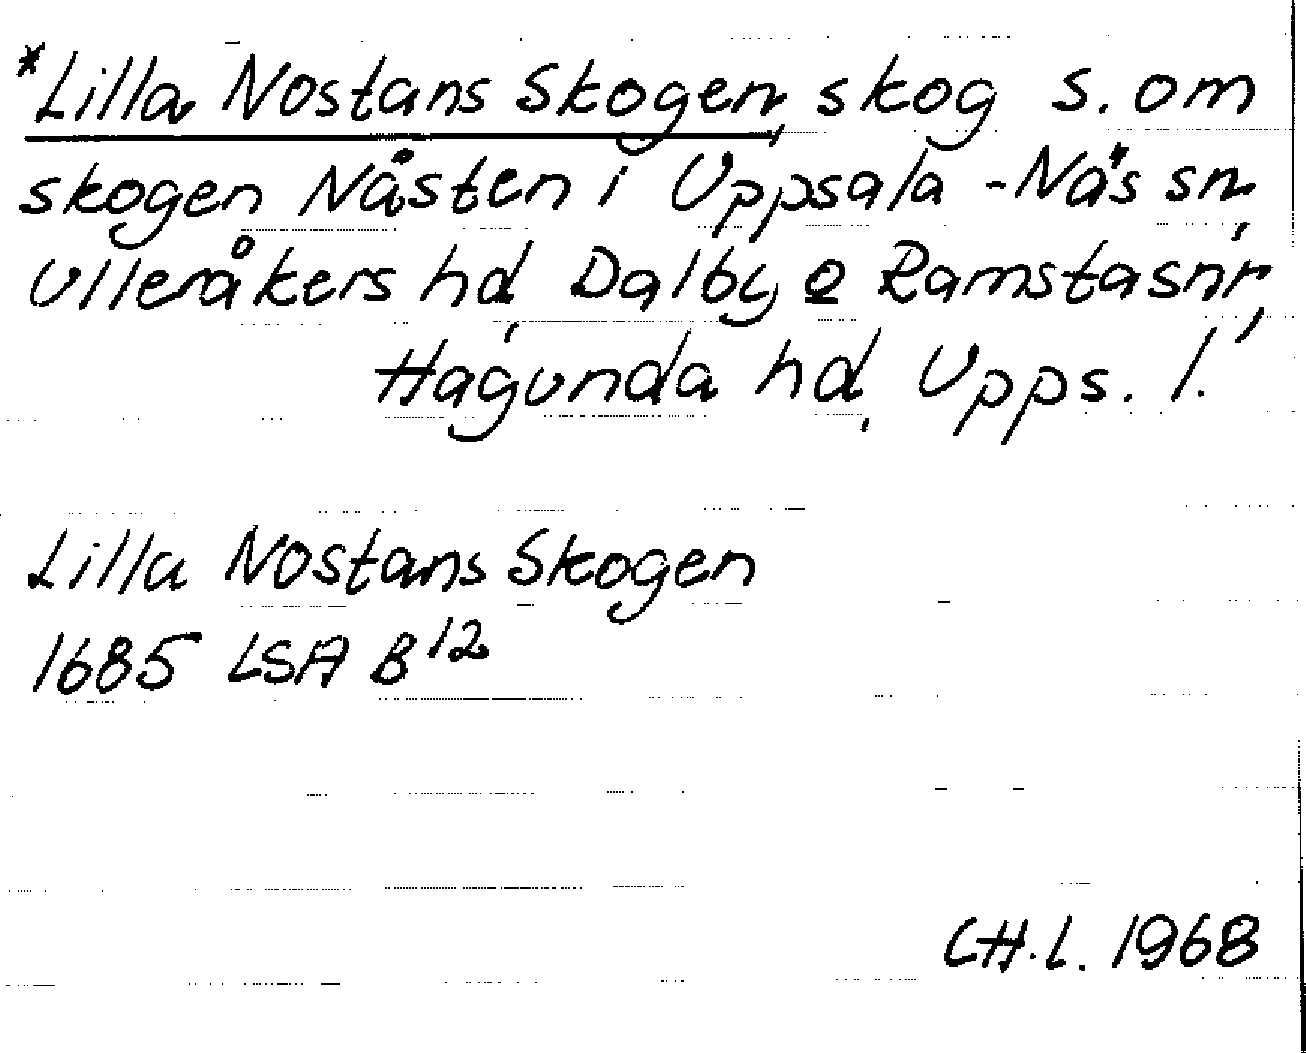 *Lilla Nostans Skogen, skog s. om
skogen Nåsten i Uppsala-Näs sn,
Ulleråkers hd, Dalby o Ramsta snr,
Hagunda hd, Upps. l.
Lilla Nostans Skogen
1685 LSA B¹²
CH.L. 1968